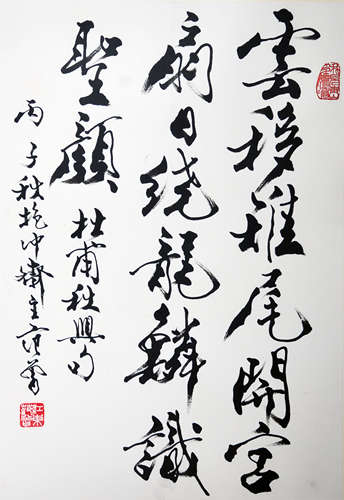 雲移雉尾開宮
扇日绕龍鱗識
聖顔
杜甫秋興句
丙子秋抱冲齋主范曾